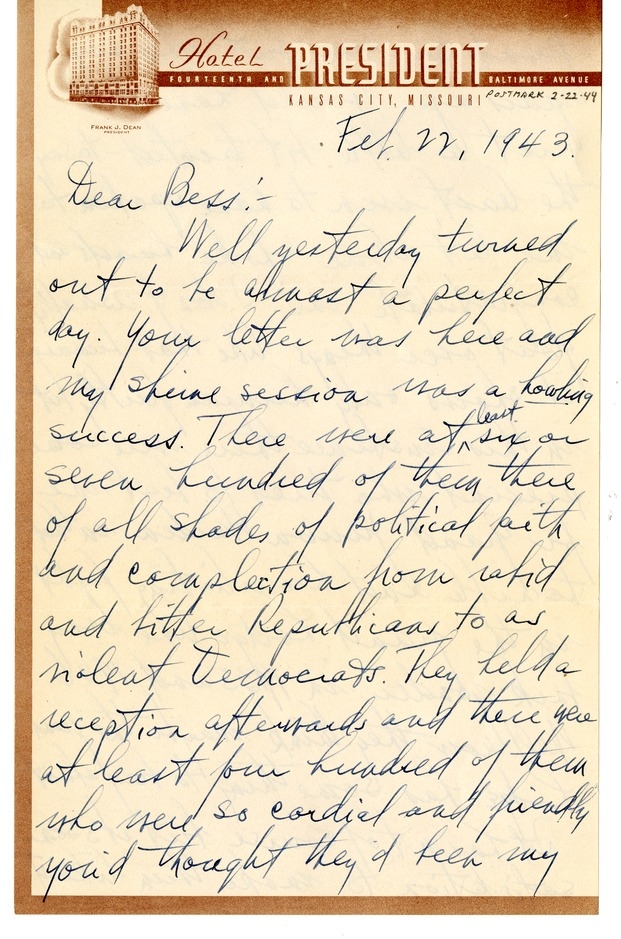 Hotel PRESIDENT
FOURTEENTH AND BALTIMORE AVENUE
KANSAS CITY, MISSOURI
POSTMARK 2-22-44
FRANK J. DEAN
PRESIDENT
Feb. 22, 1943.
Dear Bess:-
Well yesterday turned
out to be almost a perfect
day. Your letter was here and
my shrine session was a howling
success. There were at least six or
seven hundred of them there
of all shades of political faith
and complection from rabid
and bitter Republicans to as
violent Democrats. They held a
reception afterwards and there were
at least four hundred of them
who were so cordial and friendly
you'd thought they'd been my